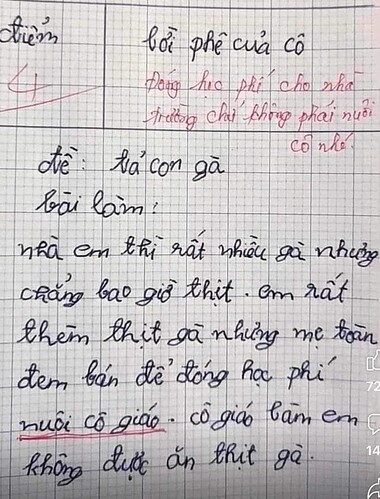 điểm
lời phê của cô
4
Đóng học phí cho nhà
trường chứ không phải nuôi
cô nhé.
đề: tả con gà
bài làm:
nhà em thì rất nhiều gà nhưng
chẳng bao giờ thịt. em rất
thèm thịt gà nhưng mẹ toàn
đem bán để đóng học phí
nuôi cô giáo. cô giáo làm em
không được ăn thịt gà.
72
14